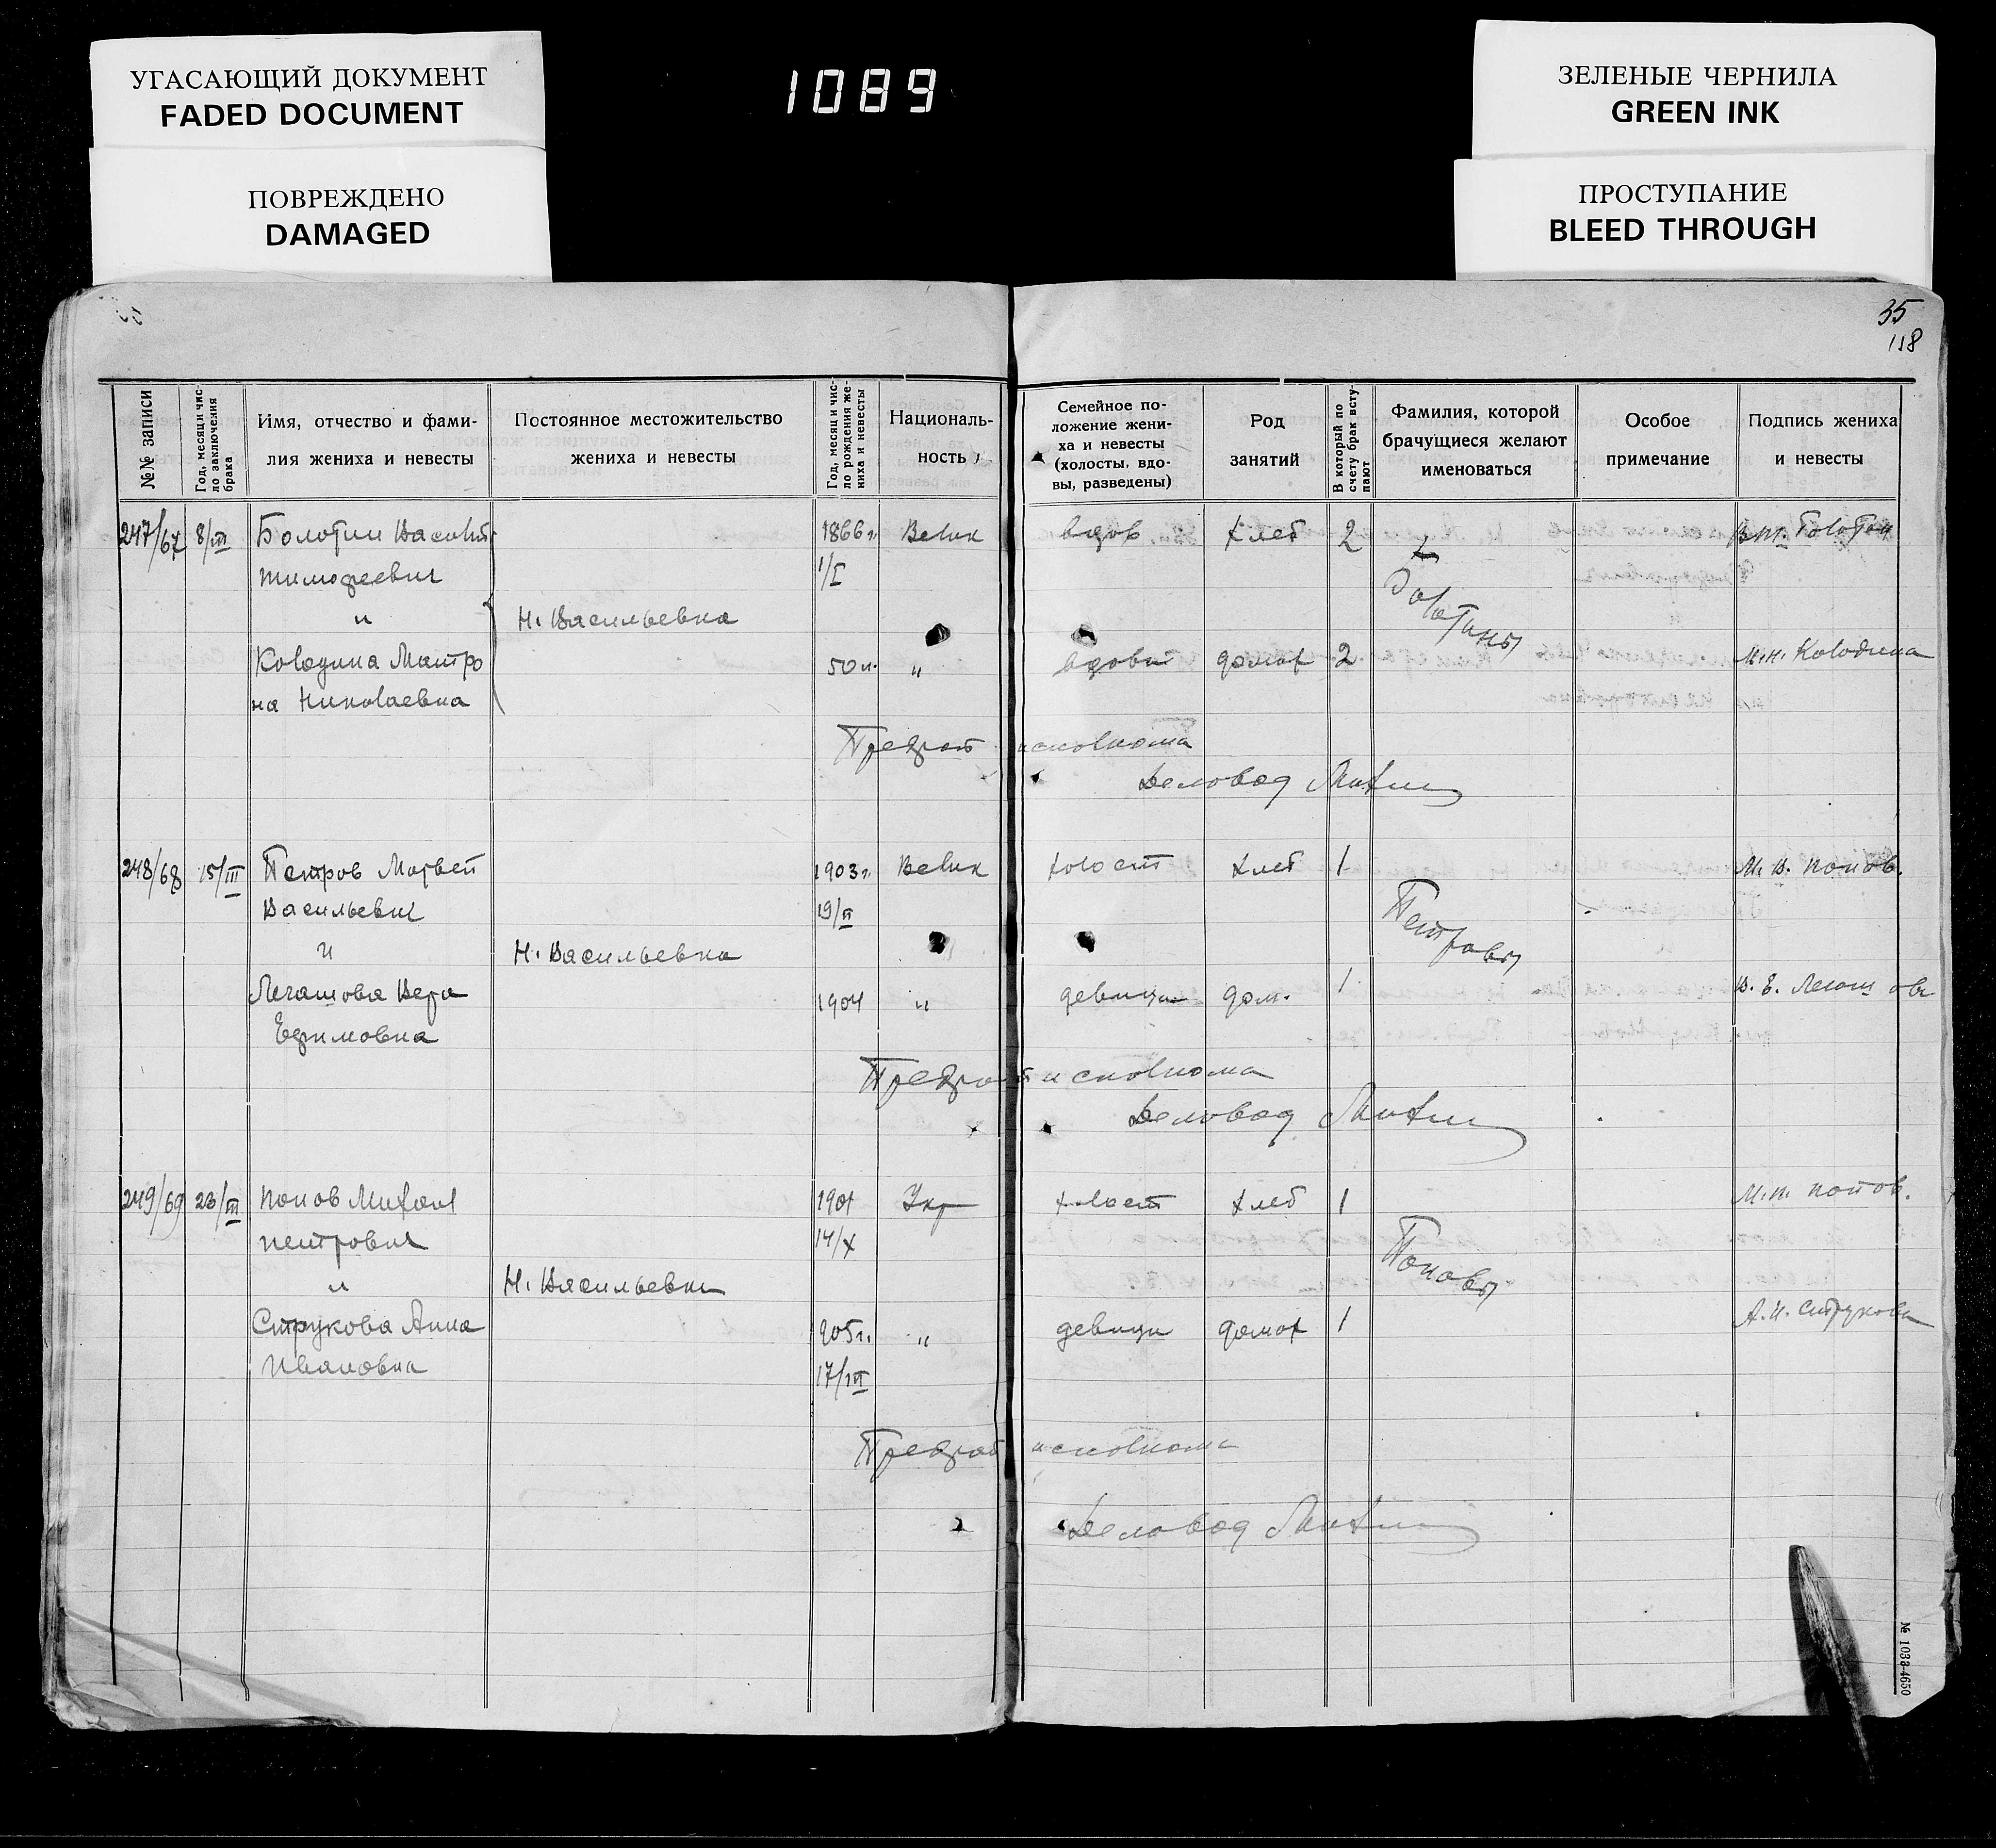 УГАСАЮЩИЙ ДОКУМЕНТ
FADED DOCUMENT
ПОВРЕЖДЕНО
DAMAGED
1089
ЗЕЛЕНЫЕ ЧЕРНИЛА
GREEN INK
ПРОСТУПАНИЕ
BLEED THROUGH
35
118
№№ записи
Год, месяц и чис-
ло заключения
брака
Имя, отчество и фами-
лия жениха и невесты
Постоянное местожительство
жениха и невесты
Год, месяц и чис-
ло рождения же-
ниха и невесты
Националь-
ность
Семейное по-
ложение жени-
ха и невесты
(холосты, вдо-
вы, разведены)
Род
занятий
В который по
счету брак всту-
пают
Фамилия, которой
брачущиеся желают
именоваться
Особое
примечание
Подпись жениха
и невесты
247/67 8/III Болотин Василий 1866 г. Велик вдов хлеб 2 В.т. Болотин
тимофеевич 1/I
и Н. Васильевка Болотины
Колодина Матро 50 л. " вдова домох 2 М.Н. Колодина
на Николаевна
Предрай исполкома
Деловод
248/68 15/III Петров Матвей 1903 г. Велик холост хлеб 1 М. В. попов.
Васильевич 19/II Петровы
и Н. Васильевка
Легашова Вера 1904 " девица дом. 1 В. Е.
Ефимовна
Предрай исполкома
Деловод
249/69 23/III попов Михаил 1901 Укр холост хлеб 1 М.п. попов.
петрович 14/X Поповы
и Н. Васильевка
Струкова Анна 1905 г. " девица домох 1 А.И. Струкова
Ивановна 17/III
Предрай исполкома
Деловод
№ 1033-4650